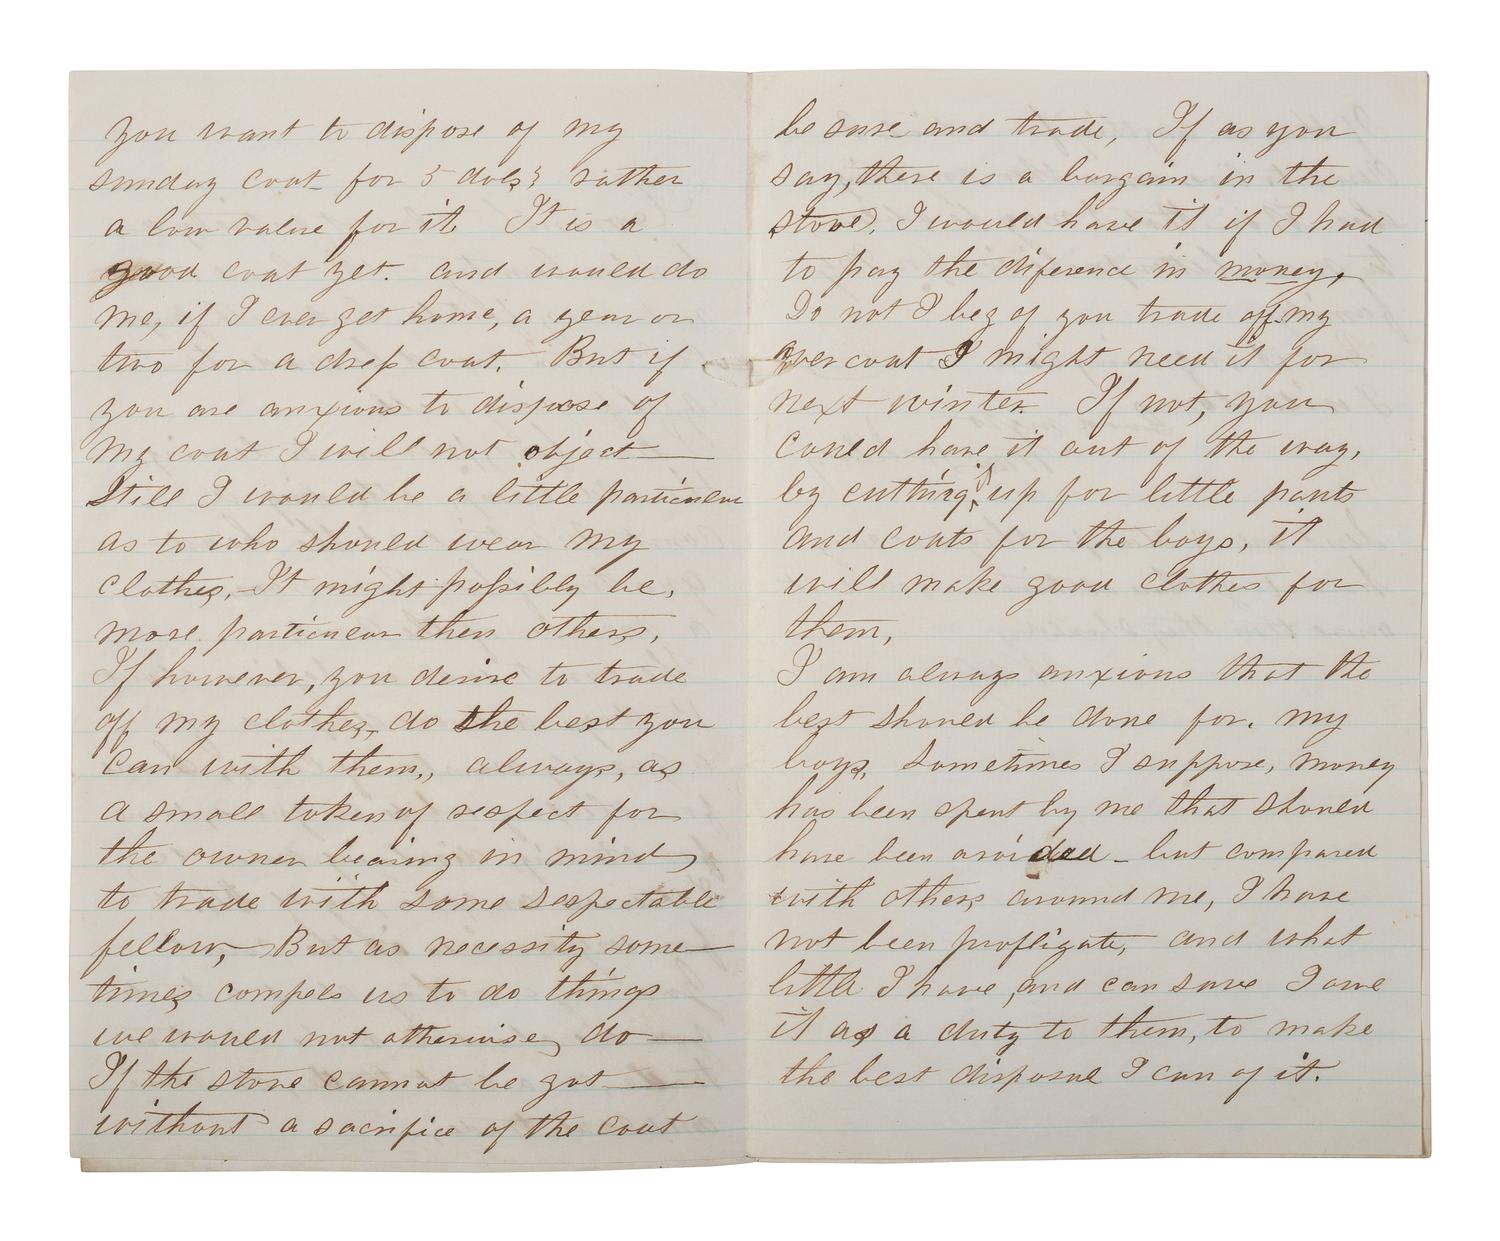 you want to dispose of my
sunday coat for 5 dols? rather
a low value for it It is a
good coat yet. and would do
me, if I ever get home, a year or
two for a dress coat. But if
you are anxious to dispose of
my coat I will not object
Still I would be a little particular
as to who should wear my
clothes, - It might possibly be,
more particular then others,
If however, you desire to trade
off my clothes, do the best you
can with them, always, as
a small token of respect for
the owner bearing in mind,
to trade with some respectable
fellow, But as necessity some
times compels us to do things
we would not otherwise, do
If the stove cannot be got
without a sacrifice of the coat
be sure and trade, If as you
say, there is a bargain in the
stove, I would have it if I had
to pay the diference in money,
Do not I beg of you trade off my
over coat I might need it for
next winter If not, you
could have it out of the way,
by cutting up for little pants
and coats for the boys, it
will make good clothes for
them,
I am always anxious that the
best should be done for. my
boys, Sometimes I suppose, money
has been spent by me that should
have been avoided - but compared
with others around me, I have
not been profligate, and what
little I have, and can save I owe
it as a duty to them, to make
the best disposal I can of it.